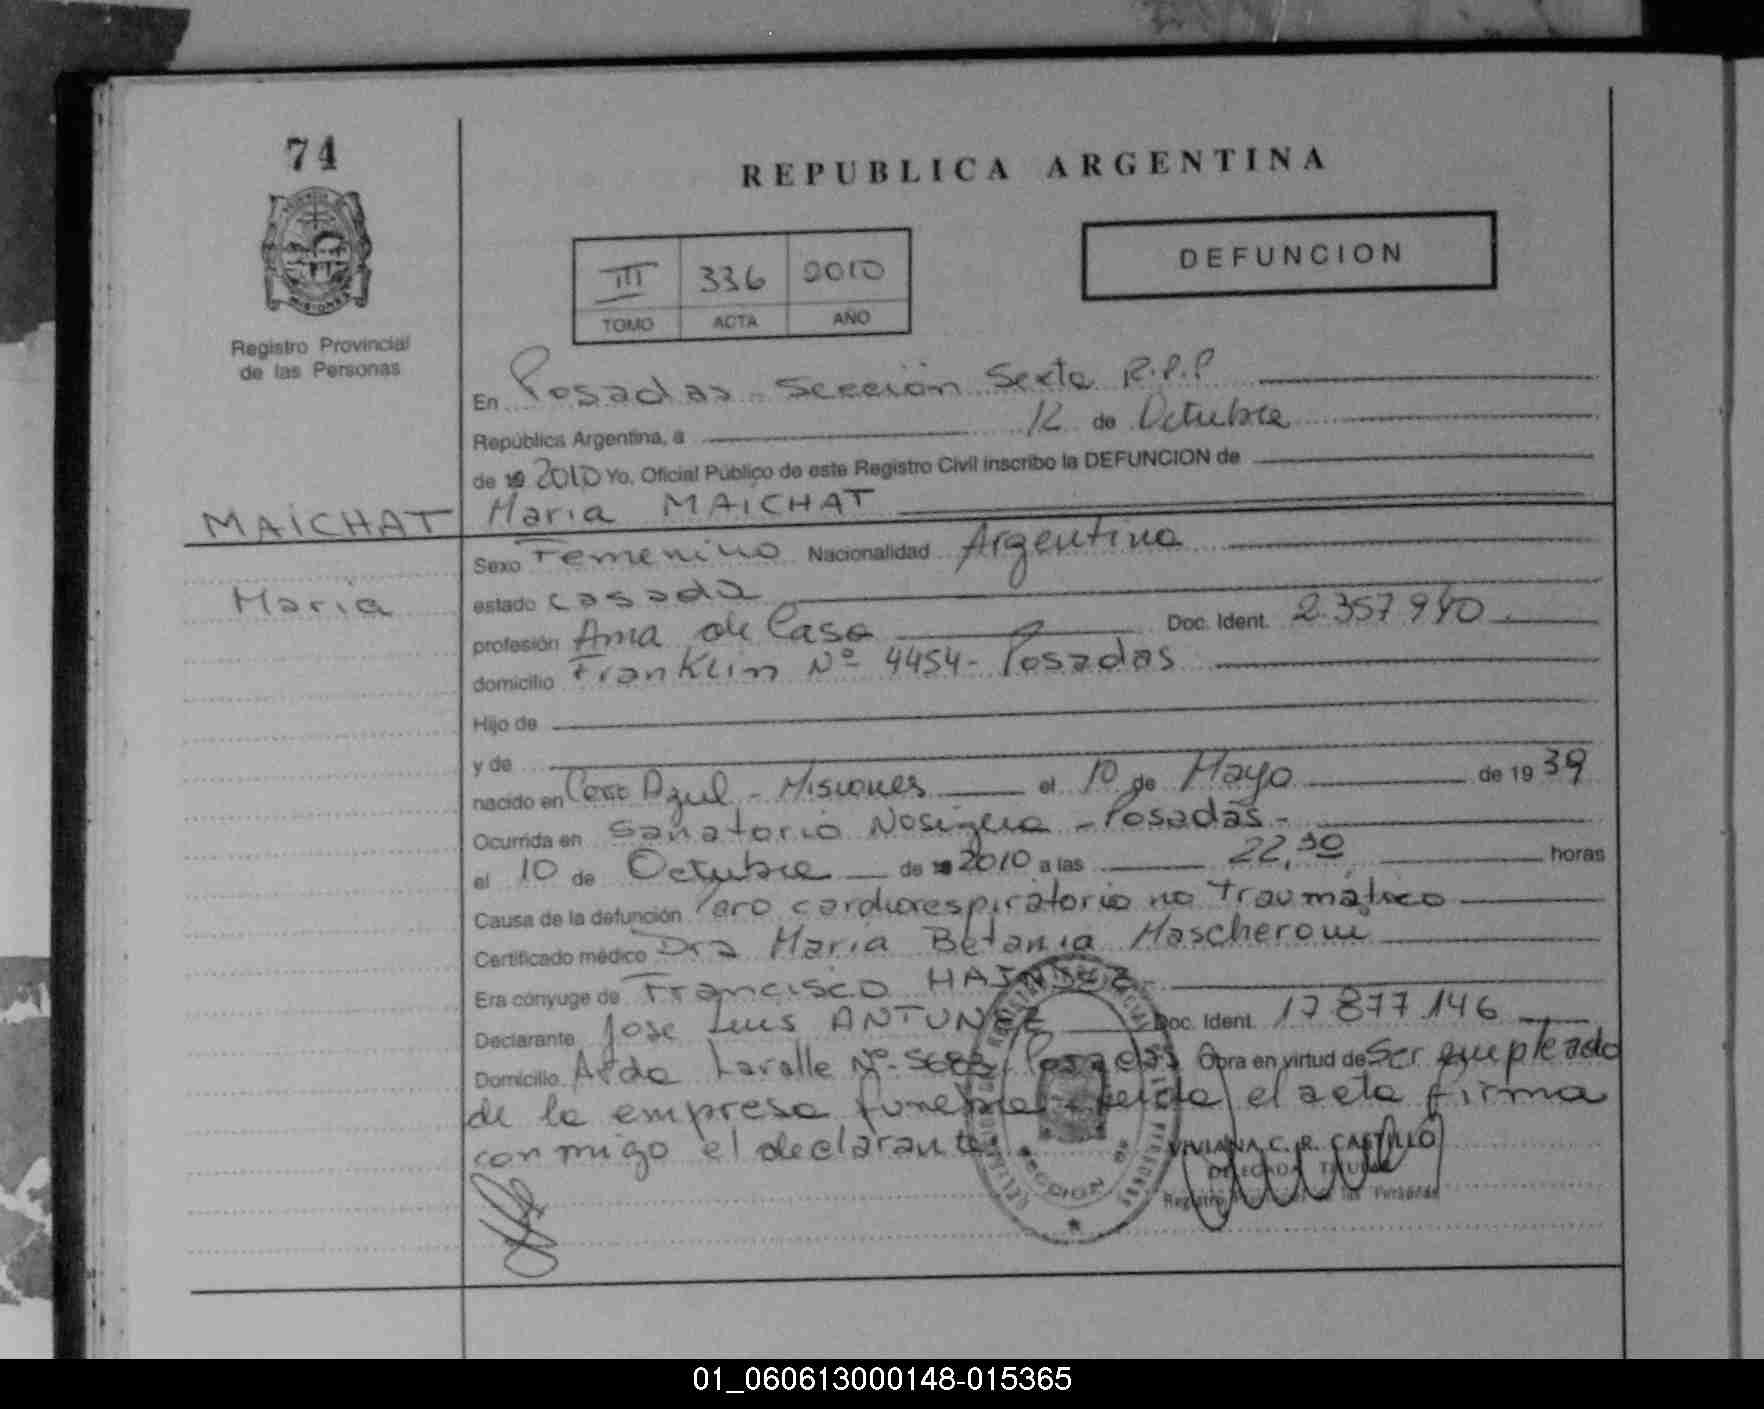 74
REPUBLICA ARGENTINA
MISIONES
Registro Provincial
de las Personas
III 336 2010
TOMO ACTA AÑO
DEFUNCION
En Posadas - Sección Sexta R.P.P
República Argentina, a 12 de Octubre
de 19 2010 Yo, Oficial Público de este Registro Civil inscribo la DEFUNCION de
MAICHAT Maria MAICHAT
Maria
Sexo Femenino Nacionalidad Argentina
estado casada
profesión Ama de Casa Doc. Ident. 2.357.940
domicilio Franklin Nº 4454 - Posadas
Hijo de
y de
nacido en Cerro Azul - Misiones el 10 de Mayo de 19 39
Ocurrida en Sanatorio Nosiglia - Posadas -
el 10 de Octubre de 19 2010 a las 22,30 horas
Causa de la defunción Paro cardiorespiratorio no traumático
Certificado médico Dra Maria Betania Mascheroni
Era cónyuge de Francisco
Declarante Jose Luis ANTUNEZ Doc. Ident. 17.877.146
Domicilio Avda Lavalle Nº Posadas Obra en virtud de Ser empleado
de la empresa funebre leida el acta firma
conmigo el declarante
VIVIANA C. R. CASTILLO
DELEGADA TITULAR
Registro de las Personas
SECCION
01_060613000148-015365